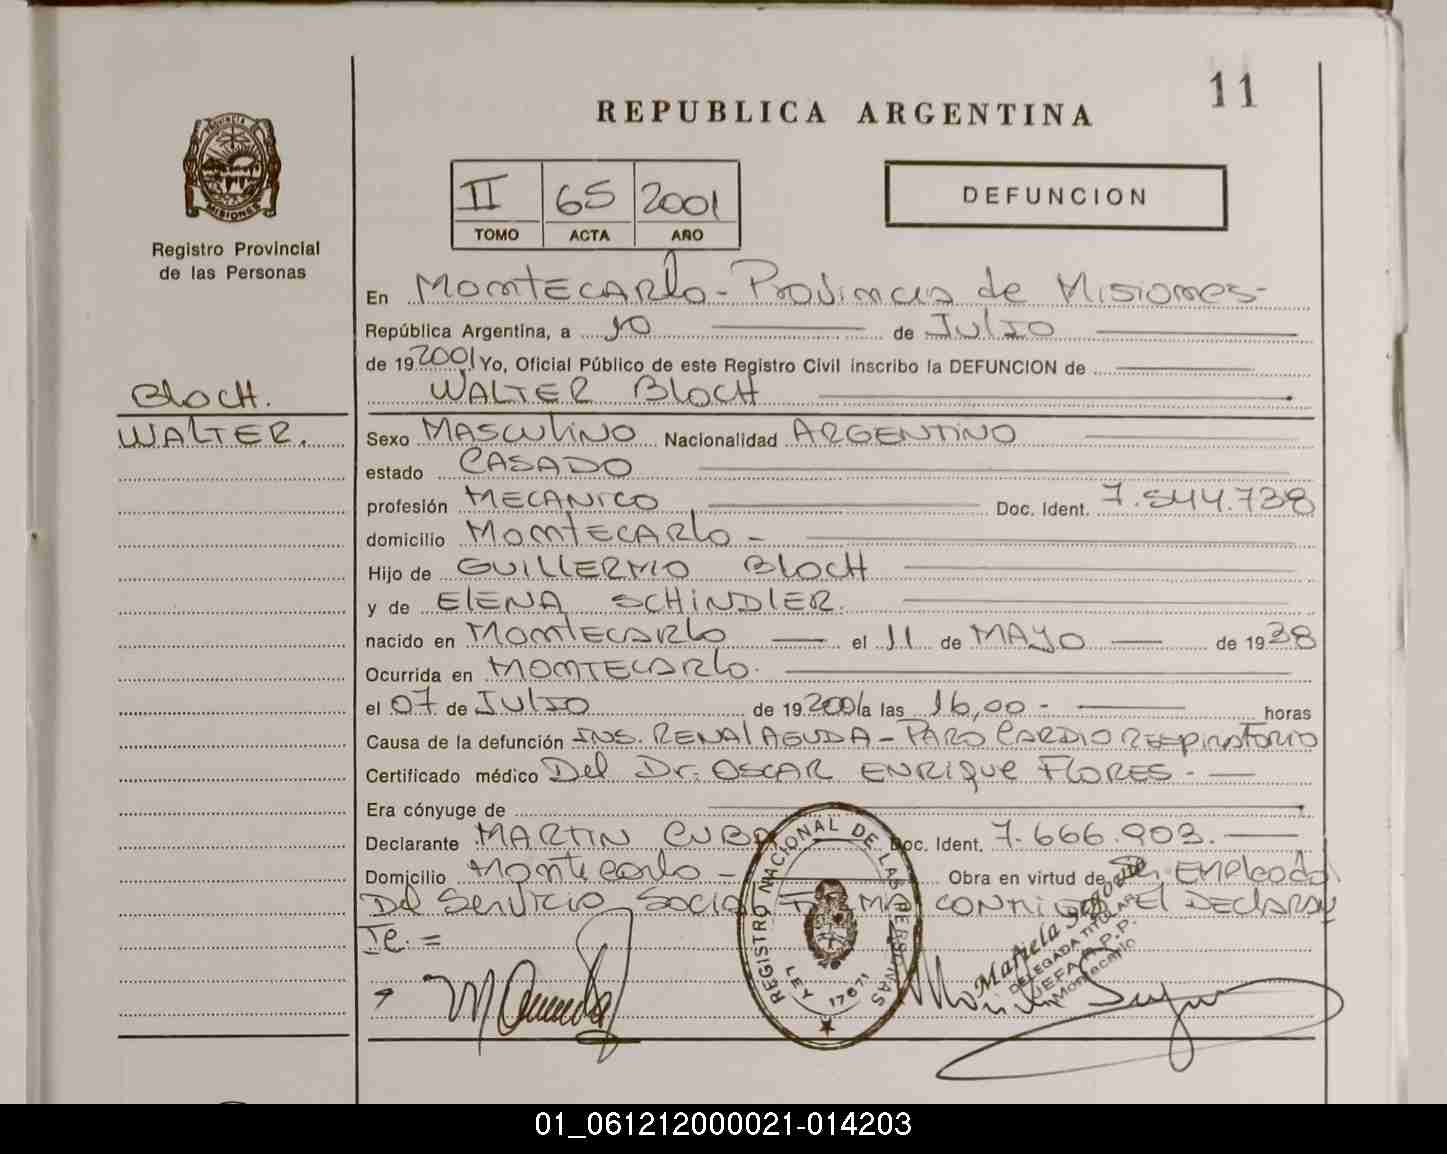 11
REPUBLICA ARGENTINA
PROVINCIA
MISIONES
Registro Provincial
de las Personas
II 65 2001
TOMO ACTA AÑO
DEFUNCION
En Montecarlo - Provincia de Misiones -
República Argentina, a 10 de Julio
de 192001 Yo, Oficial Público de este Registro Civil inscribo la DEFUNCION de
WALTER BlocH
BlocH.
WALTER.
Sexo MASCUliNO Nacionalidad ARGENTINO
estado CASADO
profesión MECANICO Doc. Ident. 7.544.738
domicilio MontECARlo -
Hijo de GUILLERMO BlocH
y de ElENA SCHiNDlER.
nacido en MontECARlo el 11 de MAYO de 1938
Ocurrida en MONTECARlo.
el 07 de Julio de 192001 a las 16,00 - horas
Causa de la defunción INS. RENAl AGUDA - PARO CARDIO RESPIRATORIO
Certificado médico Del Dr. OSCAR ENRIQUE FLORES. -
Era cónyuge de
Declarante MARTIN CUBA Doc. Ident. 7.666.903.
Domicilio Montecarlo - Obra en virtud de Empleado
Del Servicio Social FIRMA CONMIGO El DEClARAN
Te. =
REGISTRO NACIONAL DE LAS PERSONAS
LEY 17671
Mariela
DELEGADA TITULAR
JEFA R.P.P.
Montecarlo
01_061212000021-014203